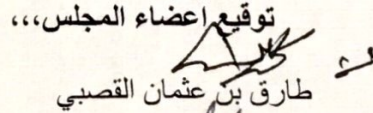 توقيع اعضاء المجلس،،،
طارق بن عثمان القصبي